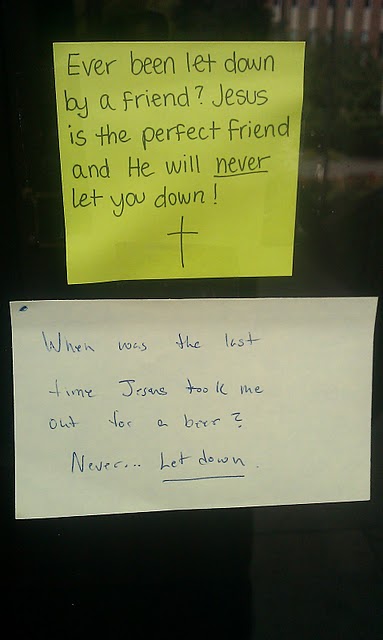 Ever been let down
by a friend? Jesus
is the perfect friend
and He will never
let you down!
When was the last
time Jesus took me
out for a beer?
Never... Let down.